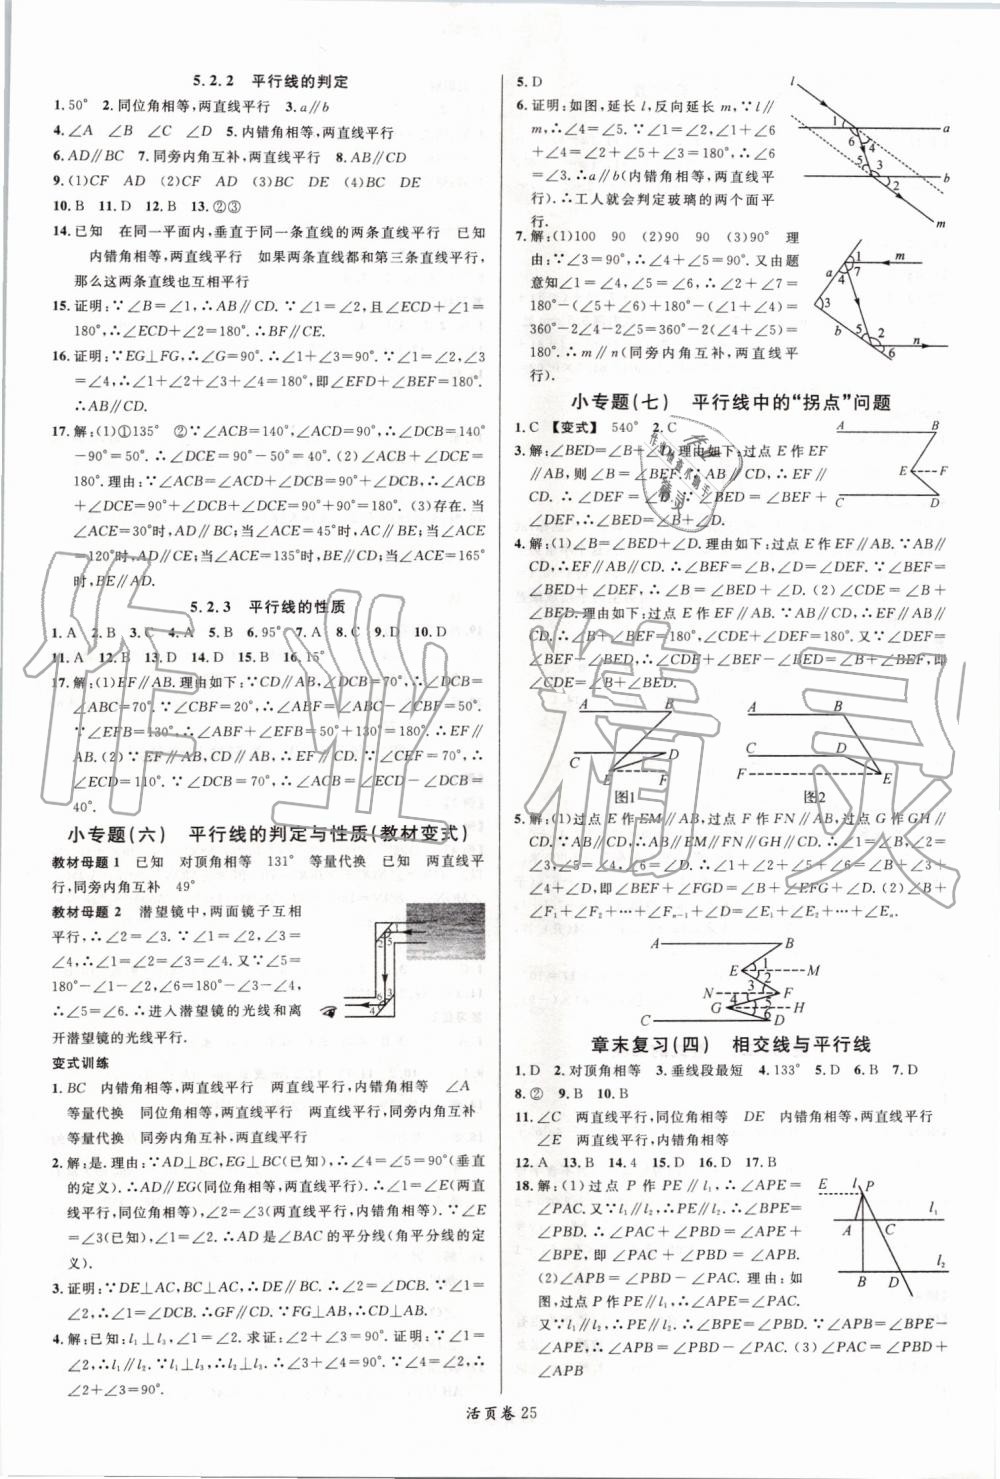 5.2.2 平行线的判定
1.50° 2.同位角相等,两直线平行 3.a∥b
4.∠A ∠B ∠C ∠D 5.内错角相等,两直线平行
6.AD∥BC 7.同旁内角互补,两直线平行 8.AB∥CD
9.(1)CF AD (2)CF AD (3)BC DE (4)BC DE
10.B 11.D 12.B 13.②③
14.已知 在同一平面内,垂直于同一条直线的两条直线平行 已知
内错角相等,两直线平行 如果两条直线都和第三条直线平行,
那么这两条直线也互相平行
15.证明:∵∠B=∠1,∴AB∥CD.∵∠1=∠2,且∠ECD+∠1=
180°,∴∠ECD+∠2=180°.∴BF∥CE.
16.证明:∵EG⊥FG,∴∠G=90°.∴∠1+∠3=90°.∵∠1=∠2,∠3
=∠4,∴∠1+∠2+∠3+∠4=180°,即∠EFD+∠BEF=180°.
∴AB∥CD.
17.解:(1)①135° ②∵∠ACB=140°,∠ACD=90°,∴∠DCB=140°
-90°=50°.∴∠DCE=90°-50°=40°.(2)∠ACB+∠DCE=
180°.理由:∵∠ACB=∠ACD+∠DCB=90°+∠DCB,∴∠ACB
+∠DCE=90°+∠DCB+∠DCE=90°+90°=180°.(3)存在.当
∠ACE=30°时,AD∥BC;当∠ACE=45°时,AC∥BE;当∠ACE
=120°时,AD∥CE;当∠ACE=135°时,BE∥CD;当∠ACE=165°
时,BE∥AD.
5.2.3 平行线的性质
1.A 2.B 3.C 4.A 5.B 6.95° 7.A 8.C 9.D 10.D
11.A 12.B 13.D 14.D 15.B 16.15°
17.解:(1)EF∥AB.理由如下:∵CD∥AB,∠DCB=70°,∴∠DCB=
∠ABC=70°.∵∠CBF=20°,∴∠ABF=∠ABC-∠CBF=50°.
∵∠EFB=130°,∴∠ABF+∠EFB=50°+130°=180°.∴EF∥
AB.(2)∵EF∥AB,CD∥AB,∴EF∥CD.∵∠CEF=70°,∴
∠ECD=110°.∵∠DCB=70°,∴∠ACB=∠ECD-∠DCB=
40°.
小专题(六) 平行线的判定与性质(教材变式)
教材母题1 已知 对顶角相等 131° 等量代换 已知 两直线平
行,同旁内角互补 49°
教材母题2 潜望镜中,两面镜子互相
平行,∴∠2=∠3.∵∠1=∠2,∠3=
∠4,∴∠1=∠2=∠3=∠4.又∵∠5=
180°-∠1-∠2,∠6=180°-∠3-∠4,
∴∠5=∠6.∴进入潜望镜的光线和离
开潜望镜的光线平行.
1 2 5 6 3 4
变式训练
1.BC 内错角相等,两直线平行 两直线平行,内错角相等 ∠A
等量代换 同位角相等,两直线平行 两直线平行,同旁内角互补
等量代换 同旁内角互补,两直线平行
2.解:是.理由:∵AD⊥BC,EG⊥BC(已知),∴∠4=∠5=90°(垂直
的定义).∴AD∥EG(同位角相等,两直线平行).∴∠1=∠E(两直
线平行,同位角相等),∠2=∠3(两直线平行,内错角相等).∵∠E
=∠3(已知),∴∠1=∠2.∴AD是∠BAC的平分线(角平分线的定
义).
3.证明:∵DE⊥AC,BC⊥AC,∴DE∥BC.∴∠2=∠DCB.∵∠1=
∠2,∴∠1=∠DCB.∴GF∥CD.∵FG⊥AB,∴CD⊥AB.
4.解:已知:l₁⊥l₃,∠1=∠2.求证:∠2+∠3=90°.证明:∵∠1=
∠2,∴l₁∥l₂.∵l₁⊥l₃,∴l₂⊥l₃.∴∠3+∠4=90°.∵∠4=∠2,∴
∠2+∠3=90°.
5.D
6.证明:如图,延长l,反向延长m,∵l∥
m,∴∠4=∠5.∵∠1=∠2,∠1+∠6
+∠4=∠2+∠3+∠5=180°,∴∠6
=∠3.∴a∥b(内错角相等,两直线平
行).∴工人就会判定玻璃的两个面平
行.
l 1 6 4 a 5 3 2 b m
7.解:(1)100 90 (2)90 90 (3)90° 理
由:∵∠3=90°,∴∠4+∠5=90°.又由题
意知∠1=∠4,∠5=∠6,∴∠2+∠7=
180°-(∠5+∠6)+180°-(∠1+∠4)=
360°-2∠4-2∠5=360°-2(∠4+∠5)=
180°.∴m∥n(同旁内角互补,两直线平
行).
1 m a 4 7 3 5 2 6 n b
小专题(七) 平行线中的“拐点”问题
1.C 【变式】 540° 2.C
3.解:∠BED=∠B+∠D.理由如下:过点E作EF
∥AB,则∠B=∠BEF.∵AB∥CD,∴EF∥
CD.∴∠DEF=∠D.∵∠BED=∠BEF+
∠DEF,∴∠BED=∠B+∠D.
A B E F C D
4.解:(1)∠BED=∠B+∠D.理由如下:过点E作EF∥AB.∵AB∥
CD,∴AB∥EF∥CD.∴∠B=∠BEF,∠D=∠DEF.∵∠BEF=
∠BED+∠DEF,∴∠B=∠BED+∠D.(2)∠CDE=∠B+
∠BED.理由如下:过点E作EF∥AB.∵AB∥CD,∴AB∥EF∥CD.
∴∠B+∠BEF=180°,∠CDE+∠DEF=180°.又∵∠DEF=
∠BEF-∠BED,∴∠CDE+∠BEF-∠BED=∠B+∠BEF,即
∠CDE=∠B+∠BED.
A B C D E F 图1
A B C D F E 图2
5.解:(1)过点E作EM∥AB,过点F作FN∥AB,过点G作GH∥
CD.∵AB∥CD,∴AB∥EM∥FN∥GH∥CD.∴∠B=∠1,∠2=
∠3,∠4=∠5,∠6=∠D.∴∠1+∠2+∠5+∠6=∠B+∠3+
∠4+∠D,即∠BEF+∠FGD=∠B+∠EFG+∠D.(2)∠B+
∠F₁+∠F₂+…+∠Fₙ₋₁+∠D=∠E₁+∠E₂+…+∠Eₙ
A B E 1 2 M N 3 4 F G 5 6 H C D
章末复习(四) 相交线与平行线
1.D 2.对顶角相等 3.垂线段最短 4.133° 5.D 6.B 7.D
8.② 9.B 10.B
11.∠C 两直线平行,同位角相等 DE 内错角相等,两直线平行
∠E 两直线平行,内错角相等
12.A 13.B 14.4 15.D 16.D 17.B
18.解:(1)过点P作PE∥l₁,∴∠APE=
∠PAC.又∵l₁∥l₂,∴PE∥l₂.∴∠BPE=
∠PBD.∴∠PAC+∠PBD=∠APE+
∠BPE,即∠PAC+∠PBD=∠APB.
(2)∠APB=∠PBD-∠PAC.理由:如
图,过点P作PE∥l₁,∴∠APE=∠PAC.
又∵l₁∥l₂,∴PE∥l₂.∴∠BPE=∠PBD.∵∠APB=∠BPE-
∠APE,∴∠APB=∠PBD-∠PAC.(3)∠PAC=∠PBD+
∠APB
E l P A C l₁ B D l₂
作业精灵
活页卷 25